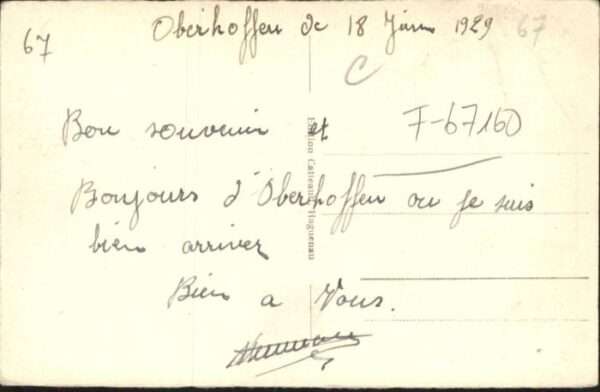 67
Oberhoffen de 18 Juin 1929 67
C
Bon souvenir et
F-67160
Bonjours d'Oberhoffen ou je suis
bien arriver
Bien a Vous.
Edition Haguenau